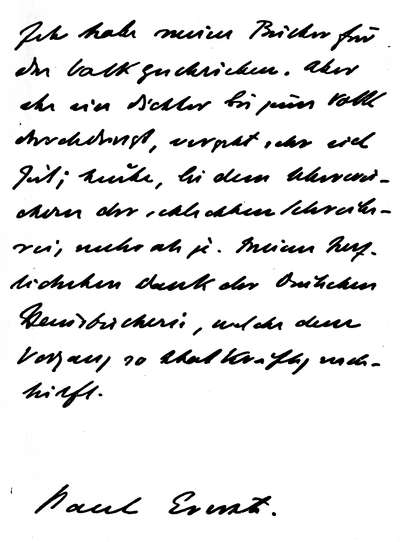 Ich habe meine Bücher für
das Volk geschrieben. Aber
ehe ein Dichter bis zum Volk
durchdringt, vergeht sehr viel
Zeit; heute, bei dem Überwu-
chern der schlechten Schreibe-
rei, mehr als je. Meinen herz-
lichsten Dank der Deutschen
Hausbücherei, welche dem
Vorgang so thatkräftig nach-
hilft.
Paul Ernst.